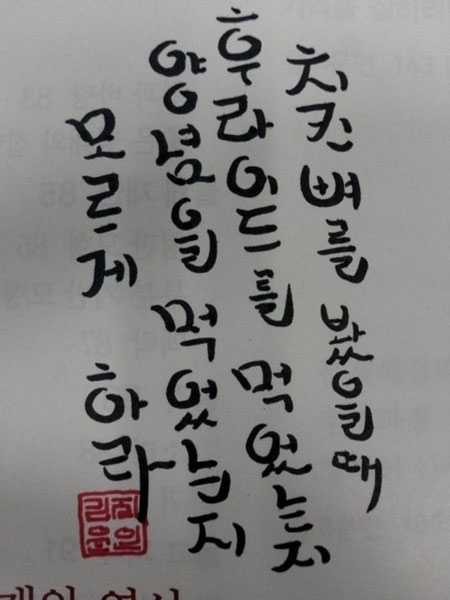 치킨 뼈를 봤을때
후라이드를 먹었는지
양념을 먹었는지
모르게 하라